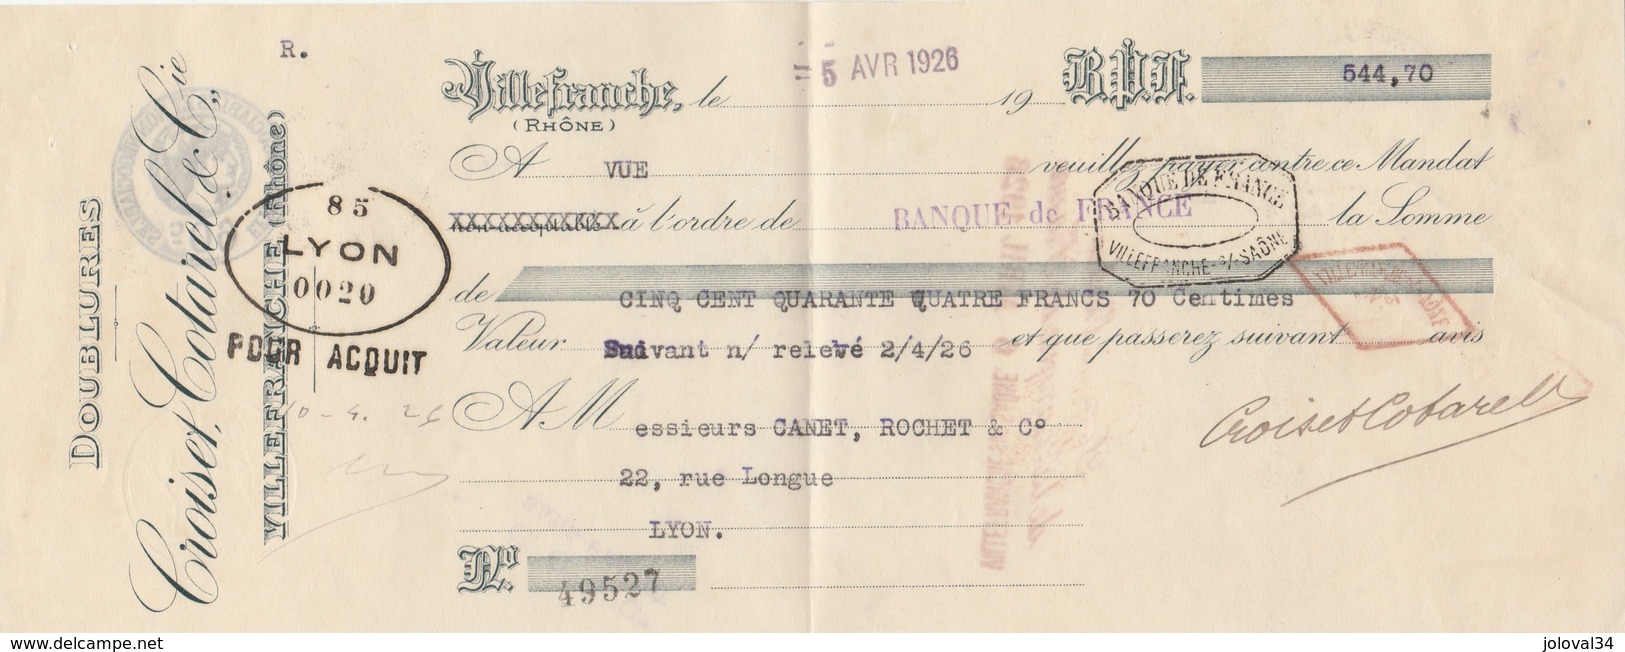 R.
DOUBLURES
Croiset, Cotarel & Cie
VILLEFRANCHE (Rhône)
85
LYON
0020
POUR ACQUIT
10-4. 26
Villefranche, le 5 AVR 1926 19 B.P.F. 544,70
(RHÔNE)
A VUE veuillez payer contre ce Mandat
XXXXXXXXXXXX à l'ordre de BANQUE de FRANCE la Somme
BANQUE DE FRANCE
VILLEFRANCHE-S/-SAÔNE
de CINQ CENT QUARANTE QUATRE FRANCS 70 Centimes
Valeur Suivant n/ relevé 2/4/26 et que passerez suivant avis
A M essieurs CANET, ROCHET & C°
22, rue Longue
LYON.
Croiset Cotarel
No. 49527
www.delcampe.net
joloval34